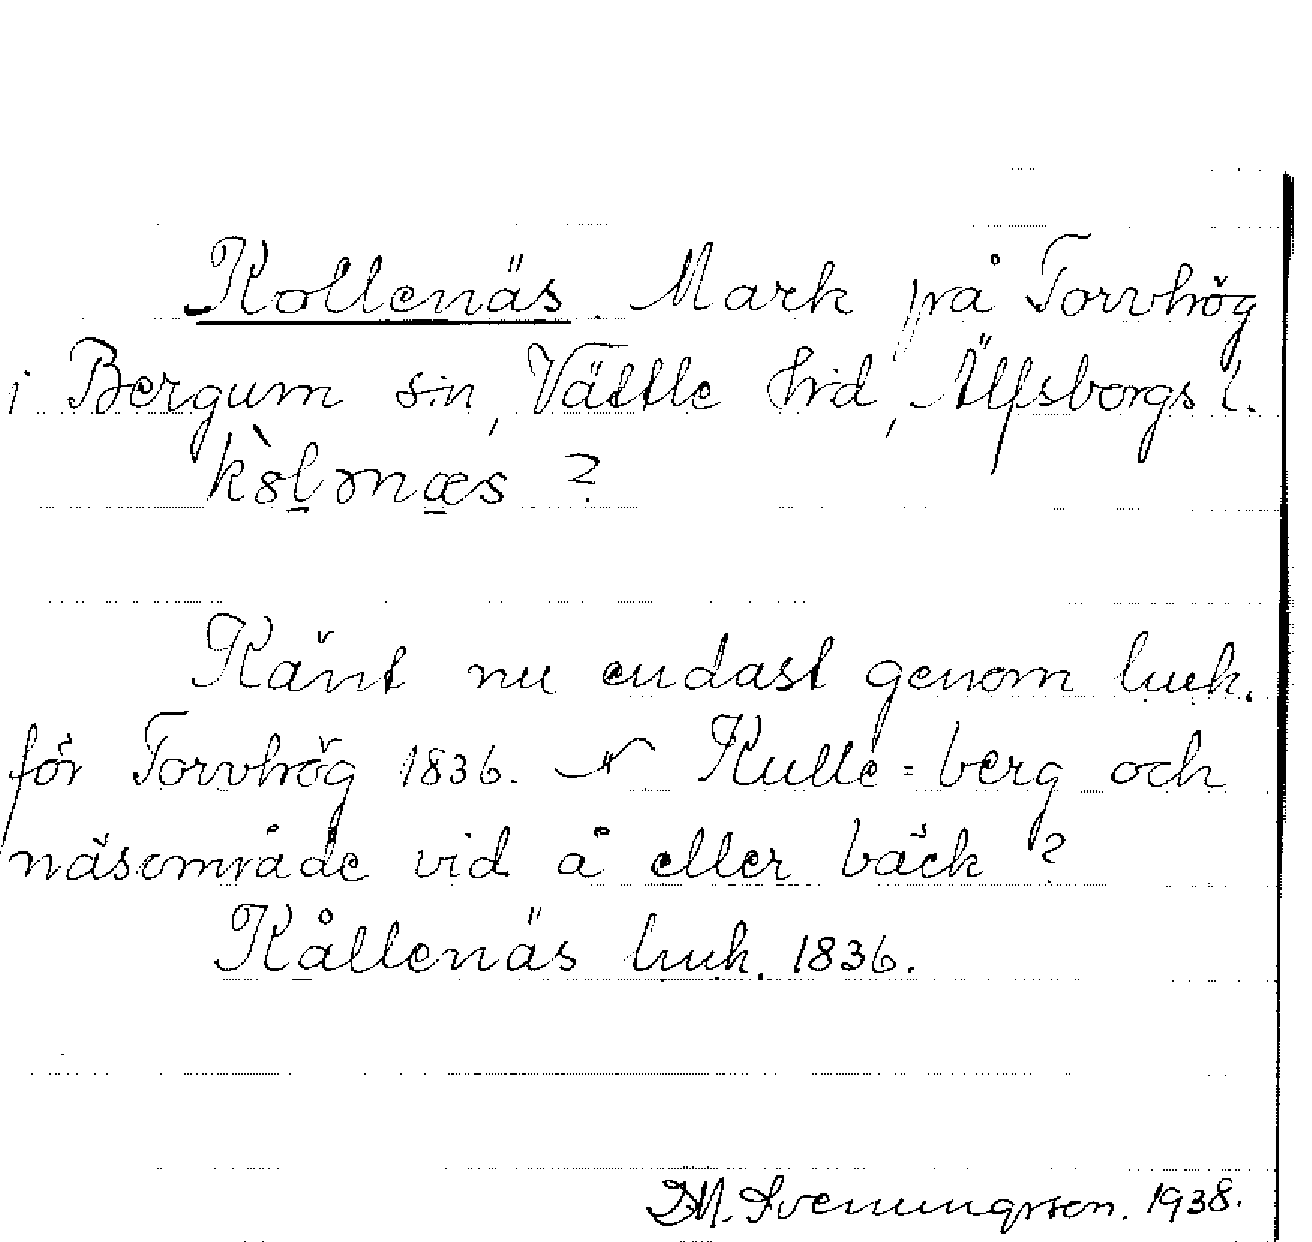 Kollenäs. Mark på Torvhög
i Bergum sn, Vättle hrd, Älfsborgs l.
kòlənæs ?
Känt nu endast genom huk.
för Torvhög 1836. Kulle = berg och
näsområde vid å eller bäck ?
Kållenäs huk. 1836.
D.M. Svenungsson. 1938.